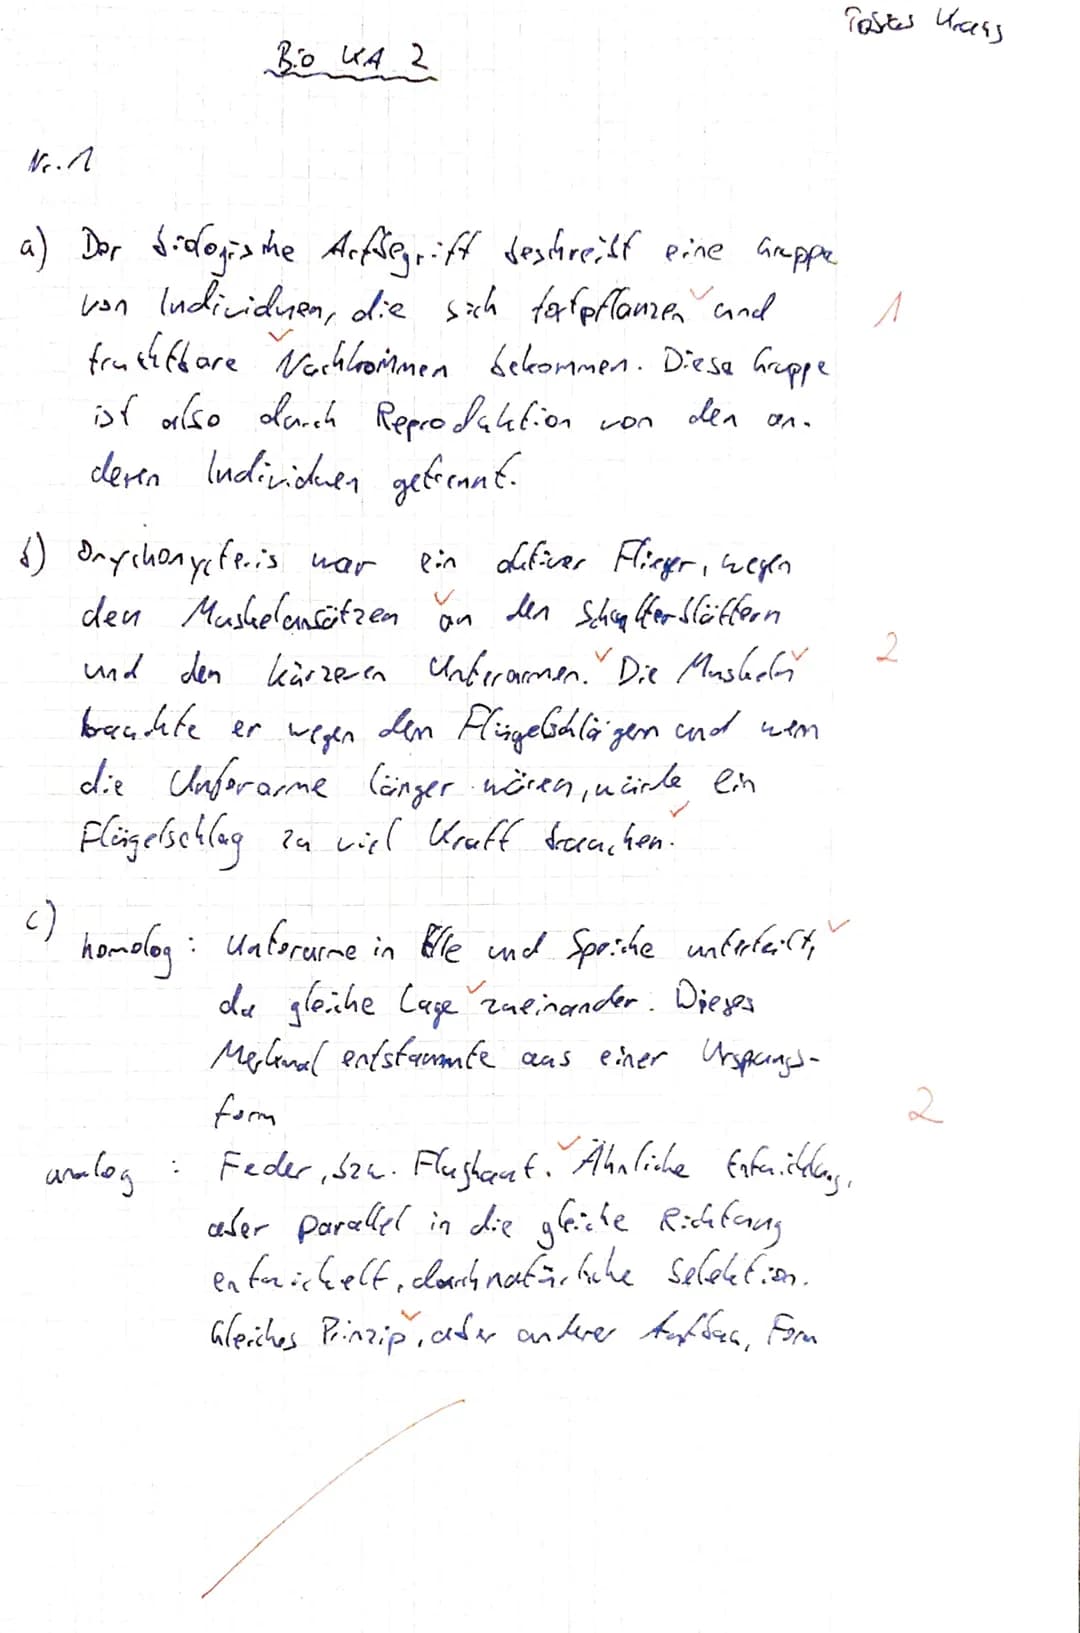 Bio KA 2
Nr. 1
a) Der biologische Artbegriff beschreibt eine Gruppe
von Individuen, die sich fortpflanzen und
1
fruchtbare Nachkommen bekommen. Diese Gruppe
ist also durch Reproduktion von den an-
deren Individuen getrennt.
b) Onychonycteris war ein aktiver Flieger, wegen
den Muskelansätzen an den Schulterblättern
und den kürzeren Unterarmen. Die Muskeln
2
brauchte er wegen den Flügelschlägen und wenn
die Unterarme länger wären, würde ein
Flügelschlag zu viel Kraft brauchen.
c)
homolog: Unterarme in Elle und Speiche unterteilt,
da gleiche Lage zueinander. Dieses
Merkmal entstammte aus einer Urspungs-
form
2
analog : Feder, bzw. Flughaut. Ähnliche Entwicklung,
aber parallel in die gleiche Richtung
entwickelt, durch natürliche Selektion.
Gleiches Prinzip, aber anderer Aufbau, Form